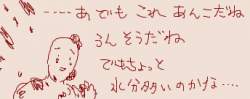 ‥‥あ でも これ あんこだね
うん そうだね
でもちょっと
水分多いのかな‥‥